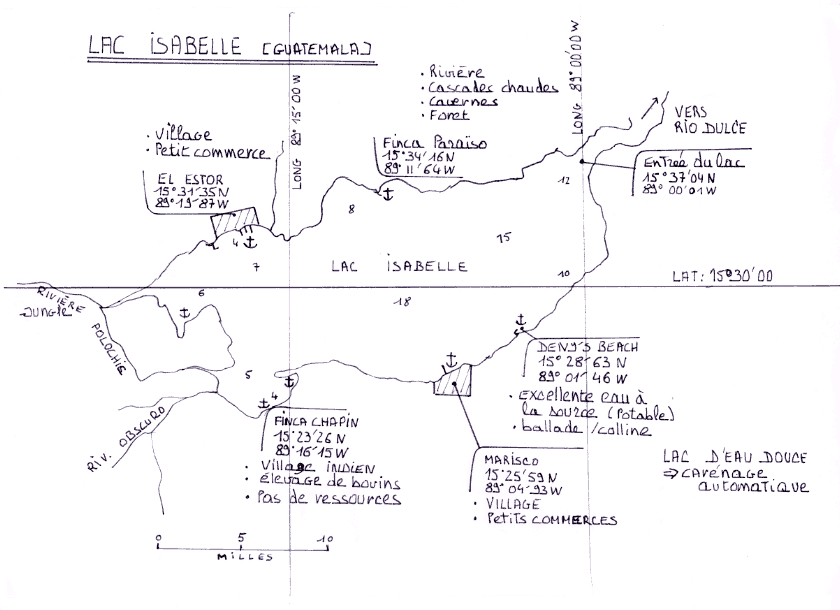 LAC ISABELLE [GUATEMALA]
LONG 89° 15' 00 W
LONG 89° 00' 00 W
• Rivière
• Cascades chaudes
• Cavernes
• Foret
VERS
RIO DULCE
• Village
• Petit commerce
EL ESTOR
15° 31' 35 N
89° 19' 87 W
Finca Paraïso
15° 34' 16 N
89° 11' 64 W
Entrée du lac
15° 37' 04 N
89° 00' 01 W
12
8
4
15
7
LAC ISABELLE
10
LAT: 15° 30' 00
6
18
RIVIÈRE
Jungle
POLOCHIS
5
4
DENY'S BEACH
15° 28' 63 N
89° 01' 46 W
• EXcellente eau à
la source (Potable)
• ballade / colline
RIV. OBSCURO
FINCA CHAPIN
15° 23' 26 N
89° 16' 15 W
• Village INDIEN
• élevage de bovins
• Pas de ressources
MARISCO
15° 25' 59 N
89° 04' 93 W
• VILLAGE
• Petits COMMERCES
LAC D'EAU DOUCE
⇒ carénage
automatique
0 5 10
MILLES